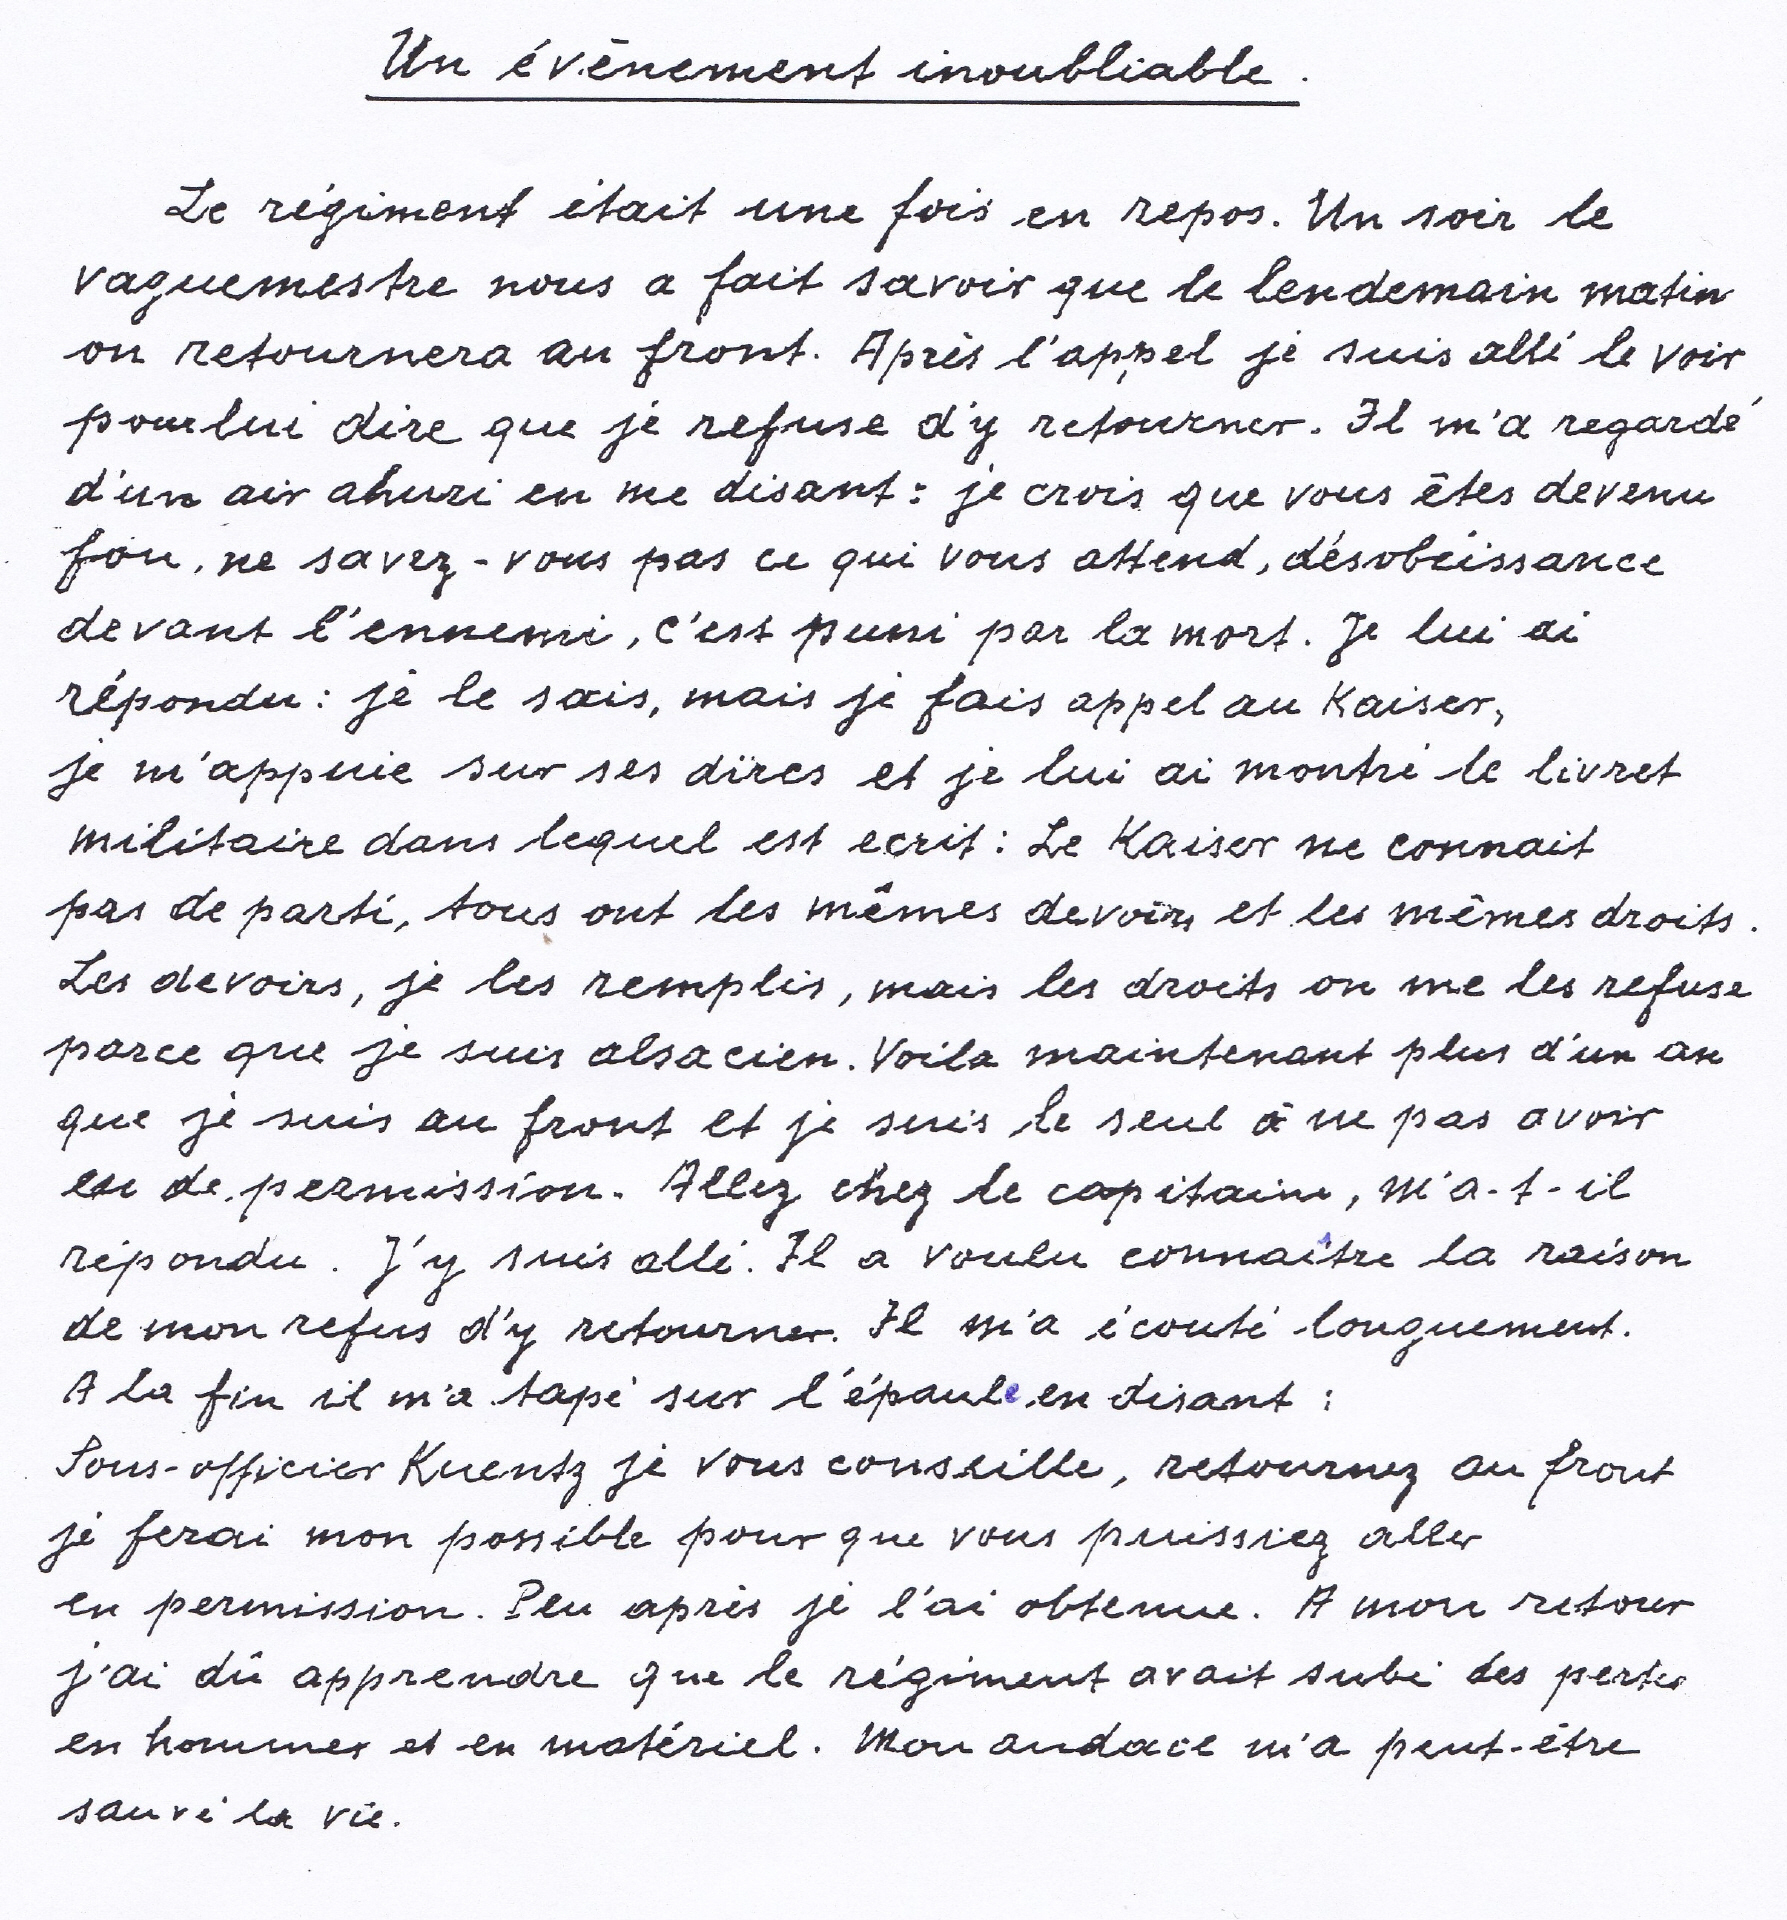 Un évènement inoubliable.
Le régiment était une fois en repos. Un soir le
vaguemestre nous a fait savoir que le lendemain matin
on retournera au front. Après l'appel je suis allé le voir
pour lui dire que je refuse d'y retourner. Il m'a regardé
d'un air ahuri en me disant : je crois que vous êtes devenu
fou, ne savez-vous pas ce qui vous attend, désobéissance
devant l'ennemi, c'est puni par la mort. Je lui ai
répondu : je le sais, mais je fais appel au Kaiser,
je m'appuie sur ses dires et je lui ai montré le livret
militaire dans lequel est ecrit : Le Kaiser ne connait
pas de parti, tous ont les mêmes devoirs et les mêmes droits.
Les devoirs, je les remplis, mais les droits on me les refuse
parce que je suis alsacien. Voila maintenant plus d'un an
que je suis au front et je suis le seul à ne pas avoir
eu de permission. Allez chez le capitaine, m'a-t-il
répondu. J'y suis allé. Il a voulu connaître la raison
de mon refus d'y retourner. Il m'a écouté longuement.
A la fin il m'a tapé sur l'épaule en disant :
Sous-officier Kuentz je vous conseille, retournez au front
je ferai mon possible pour que vous puissiez aller
en permission. Peu après je l'ai obtenue. A mon retour
j'ai dû apprendre que le régiment avait subi des pertes
en hommes et en matériel. Mon audace m'a peut-être
sauvé la vie.